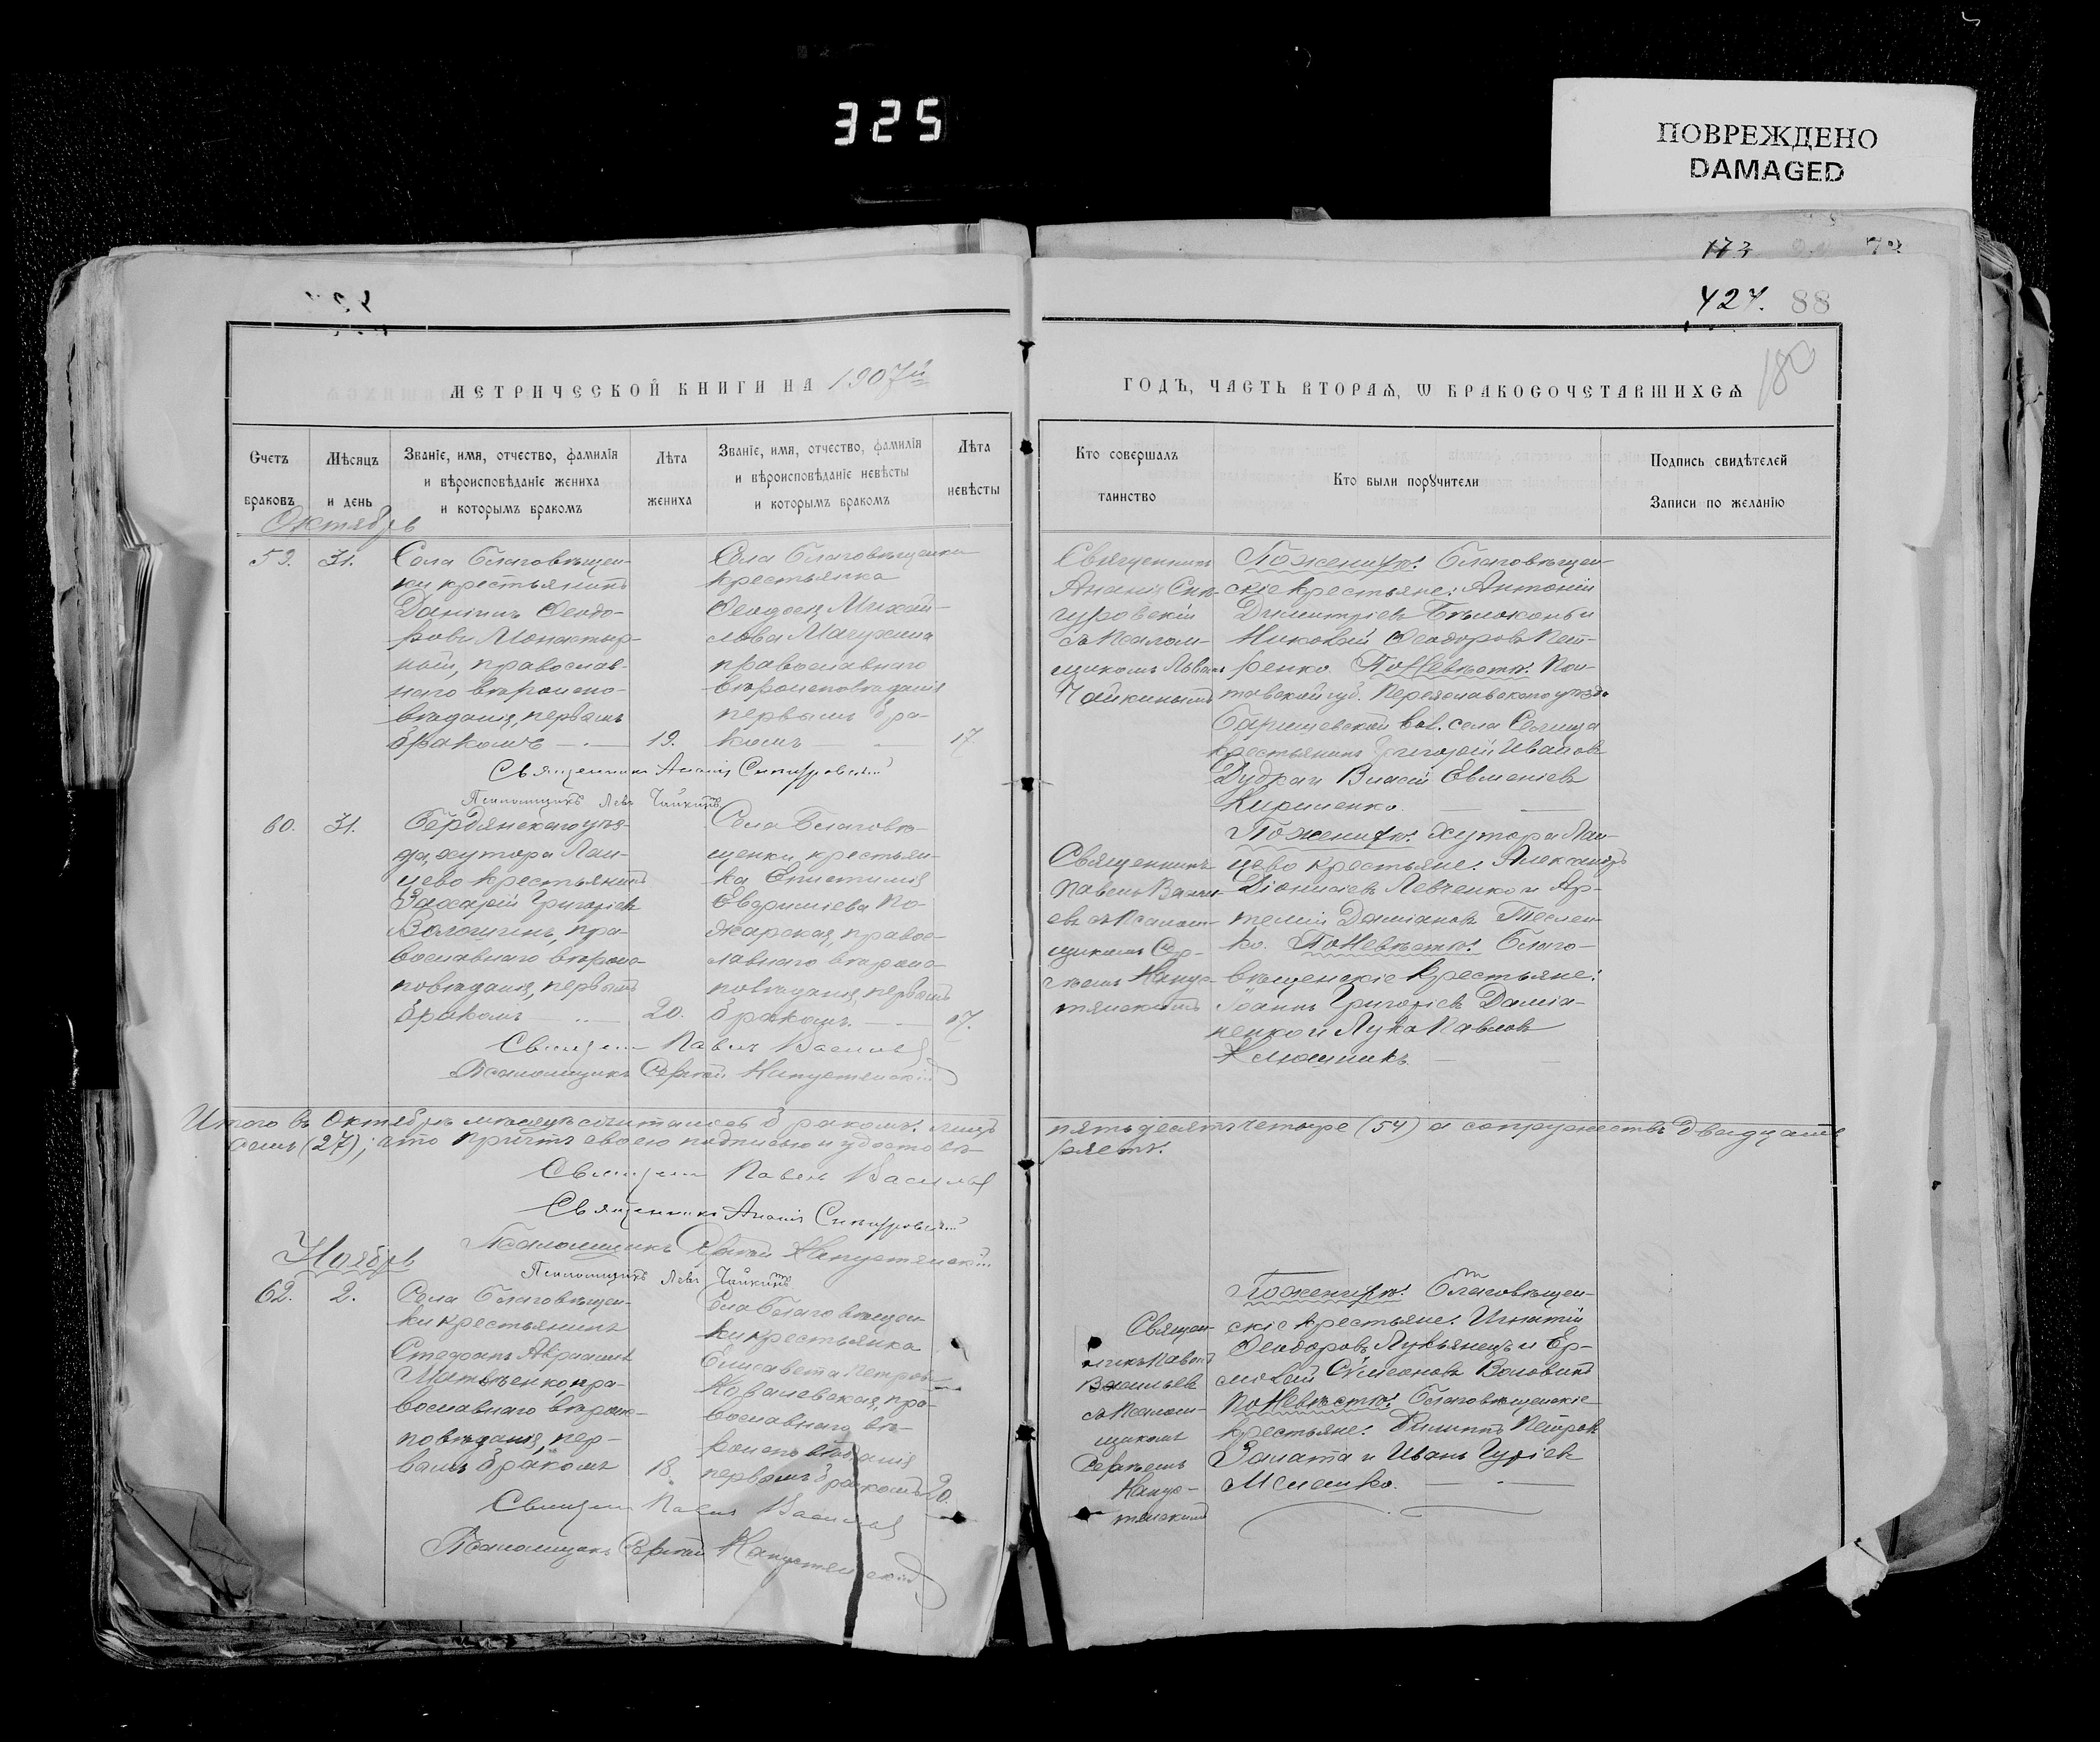 325
ПОВРЕЖДЕНО
DAMAGED
173
427. 88
180
МЕТРИЧЕСКОЙ КНИГИ НА 1907й
ГОДЪ, ЧАСТЬ ВТОРАѦ, Ѡ БРАКОСОЧЕТАВШИХСѦ
Счетъ браковъ
Мѣсяцъ и день
Званіе, имя, отчество, фамилія
и вѣроисповѣданіе жениха
и которымъ бракомъ
Лѣта жениха
Званіе, имя, отчество, фамилія
и вѣроисповѣданіе невѣсты
и которымъ бракомъ
Лѣта невѣсты
Кто совершалъ
таинство
Кто были поручители
Подпись свидѣтелей
Записи по желанію
Октябрь
59. 31.
Села Благовѣщен-
ки крестьянинъ
Даніилъ Ѳеодо-
ровъ Монастыр-
ный, православ-
наго вѣроиспо-
вѣданія, первымъ
бракомъ
19.
Села Благовѣщенки
крестьянка
Ѳеодосія Михай-
лова
православнаго
вѣроисповѣданія
первымъ бра-
комъ
17.
Священникъ
Ананія
съ Псалом-
щикомъ Львомъ
Чайкинымъ
По женихѣ: Благовѣщен-
скіе крестьяне: Антоній
Димитріевъ Бѣлоконь и
Николай Ѳеодоровъ
ренко. По Невѣстѣ: Пол-
тавской губ. Переяславскаго уѣзда
Барышевской вол. села Селища
крестьянинъ Григорій Ивановъ
Дудра и Власій Евменіевъ
Кириленко.
Священникъ Ананія
Псаломщикъ Левъ Чайкинъ
60. 31.
Бердянскаго уѣз-
да, хутора Лан-
цево крестьянинъ
Захарій Григоріевъ
Волошинъ, пра-
вославнаго вѣроис-
повѣданія, первымъ
бракомъ
20.
Села Благовѣ-
щенки, крестьян-
ка Епистимія
Евфиміева По-
жарская, правос-
лавнаго вѣроис-
повѣданія, первымъ
бракомъ.
17.
Священникъ
Павелъ Василь-
евъ съ Псалом-
щикомъ Сер-
гѣемъ Капус-
тянскимъ
По женихѣ: хутора Лан-
цево крестьяне: Александръ
Діонисіевъ Левченко и Ар-
темій Даміановъ Теслен-
ко. По Невѣстѣ: Благо-
вѣщенскіе крестьяне:
Іоаннъ Григоріевъ Даміа-
ненко и Лука Павловъ
Ключникъ.
Священ Павелъ Васильевъ
Псаломщикъ Сергѣй Капустянскій
Итого въ Октябрѣ мѣсяцѣ сочеталось бракомъ: лицъ пятьдесятъ четыре (54) а супружествъ двадцать
семь (27); что причтъ своею подписью и удостовѣ- ряетъ.
Священ Павелъ Васильевъ
Священникъ Ананія
Псаломщикъ Сергѣй Капустянскій
Псаломщикъ Левъ Чайкинъ
Ноябрь
62. 2.
Села Благовѣщен-
ки крестьянинъ
Стефанъ Авраамовъ
пра-
вославнаго вѣроис-
повѣданія, пер-
вымъ бракомъ
18.
Села Благовѣщен-
ки крестьянка
Елисавета Петрова
Ковалевская, пра-
вославнаго вѣ-
роисповѣданія
первымъ бракомъ
20.
Священ-
никъ Павелъ
Васильевъ
съ Псалом-
щикомъ
Сергѣемъ
Капус-
тянскимъ
По женихѣ: Благовѣщен-
скіе крестьяне: Игнатій
Ѳеодоровъ Лукьянецъ и Ер-
молай Сѵмеоновъ Воловикъ
По Невѣстѣ: Благовѣщенскіе
крестьяне: Филиппъ Петровъ
Замата и Иванъ Гуріевъ
Священ Павелъ Васильевъ
Псаломщикъ Сергѣй Капустянскій